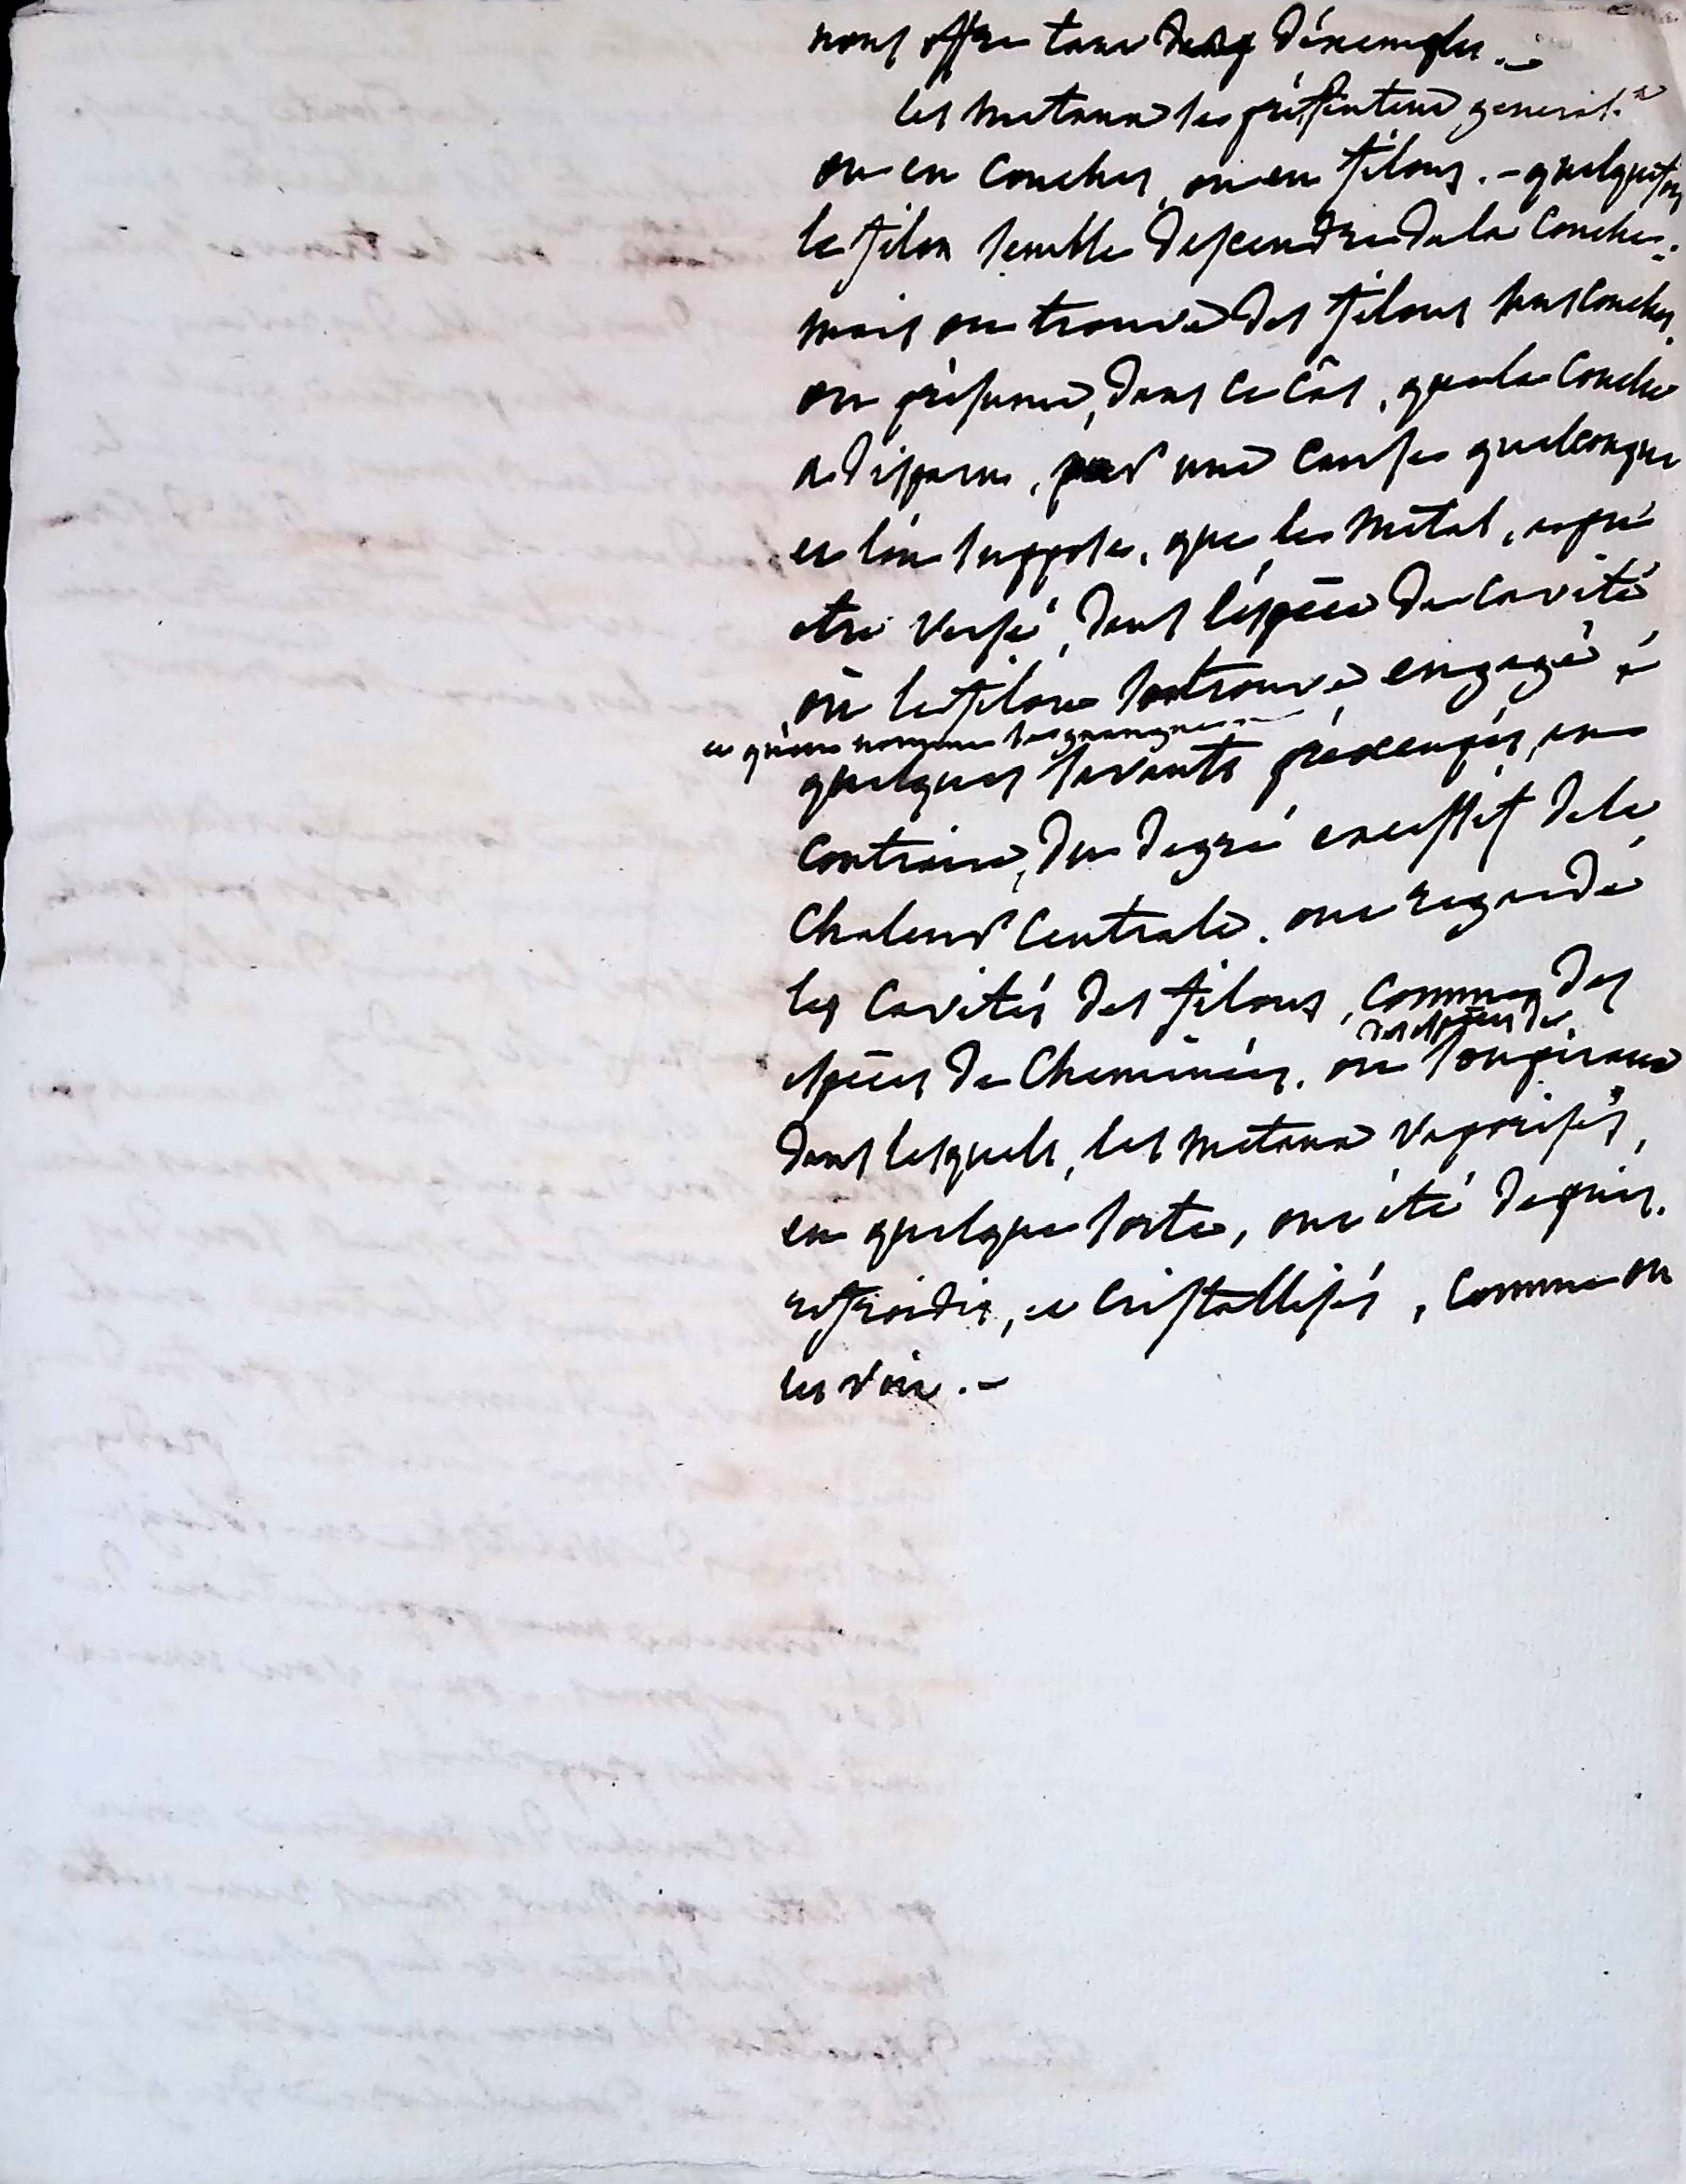 nous offre tant d'exemples. -
les metaux se présentent general.t
ou en couches, ou en filons. - quelquefois
le filon semble descendre de la couche.
mais on trouve des filons sans couches.
on présume, dans ce cas, que la couche
a disparu, par une cause quelconque
et l'on suppose, que le métal, a pu
etre versé, dans l'espèce de cavité
où le filon se trouve engagé
ce qu'on nomme sa gangue
quelques savants préoccupés, au
contraire, du degré excessif de la
chaleur centrale. ont regardé
les cavités des filons, comme des
des espèces de
espèces de cheminées. ou soupiraux
dans lesquels, les metaux vaporisés,
en quelque sorte, ont été depuis.
refroidis, et cristallisés, comme on
les voit. -